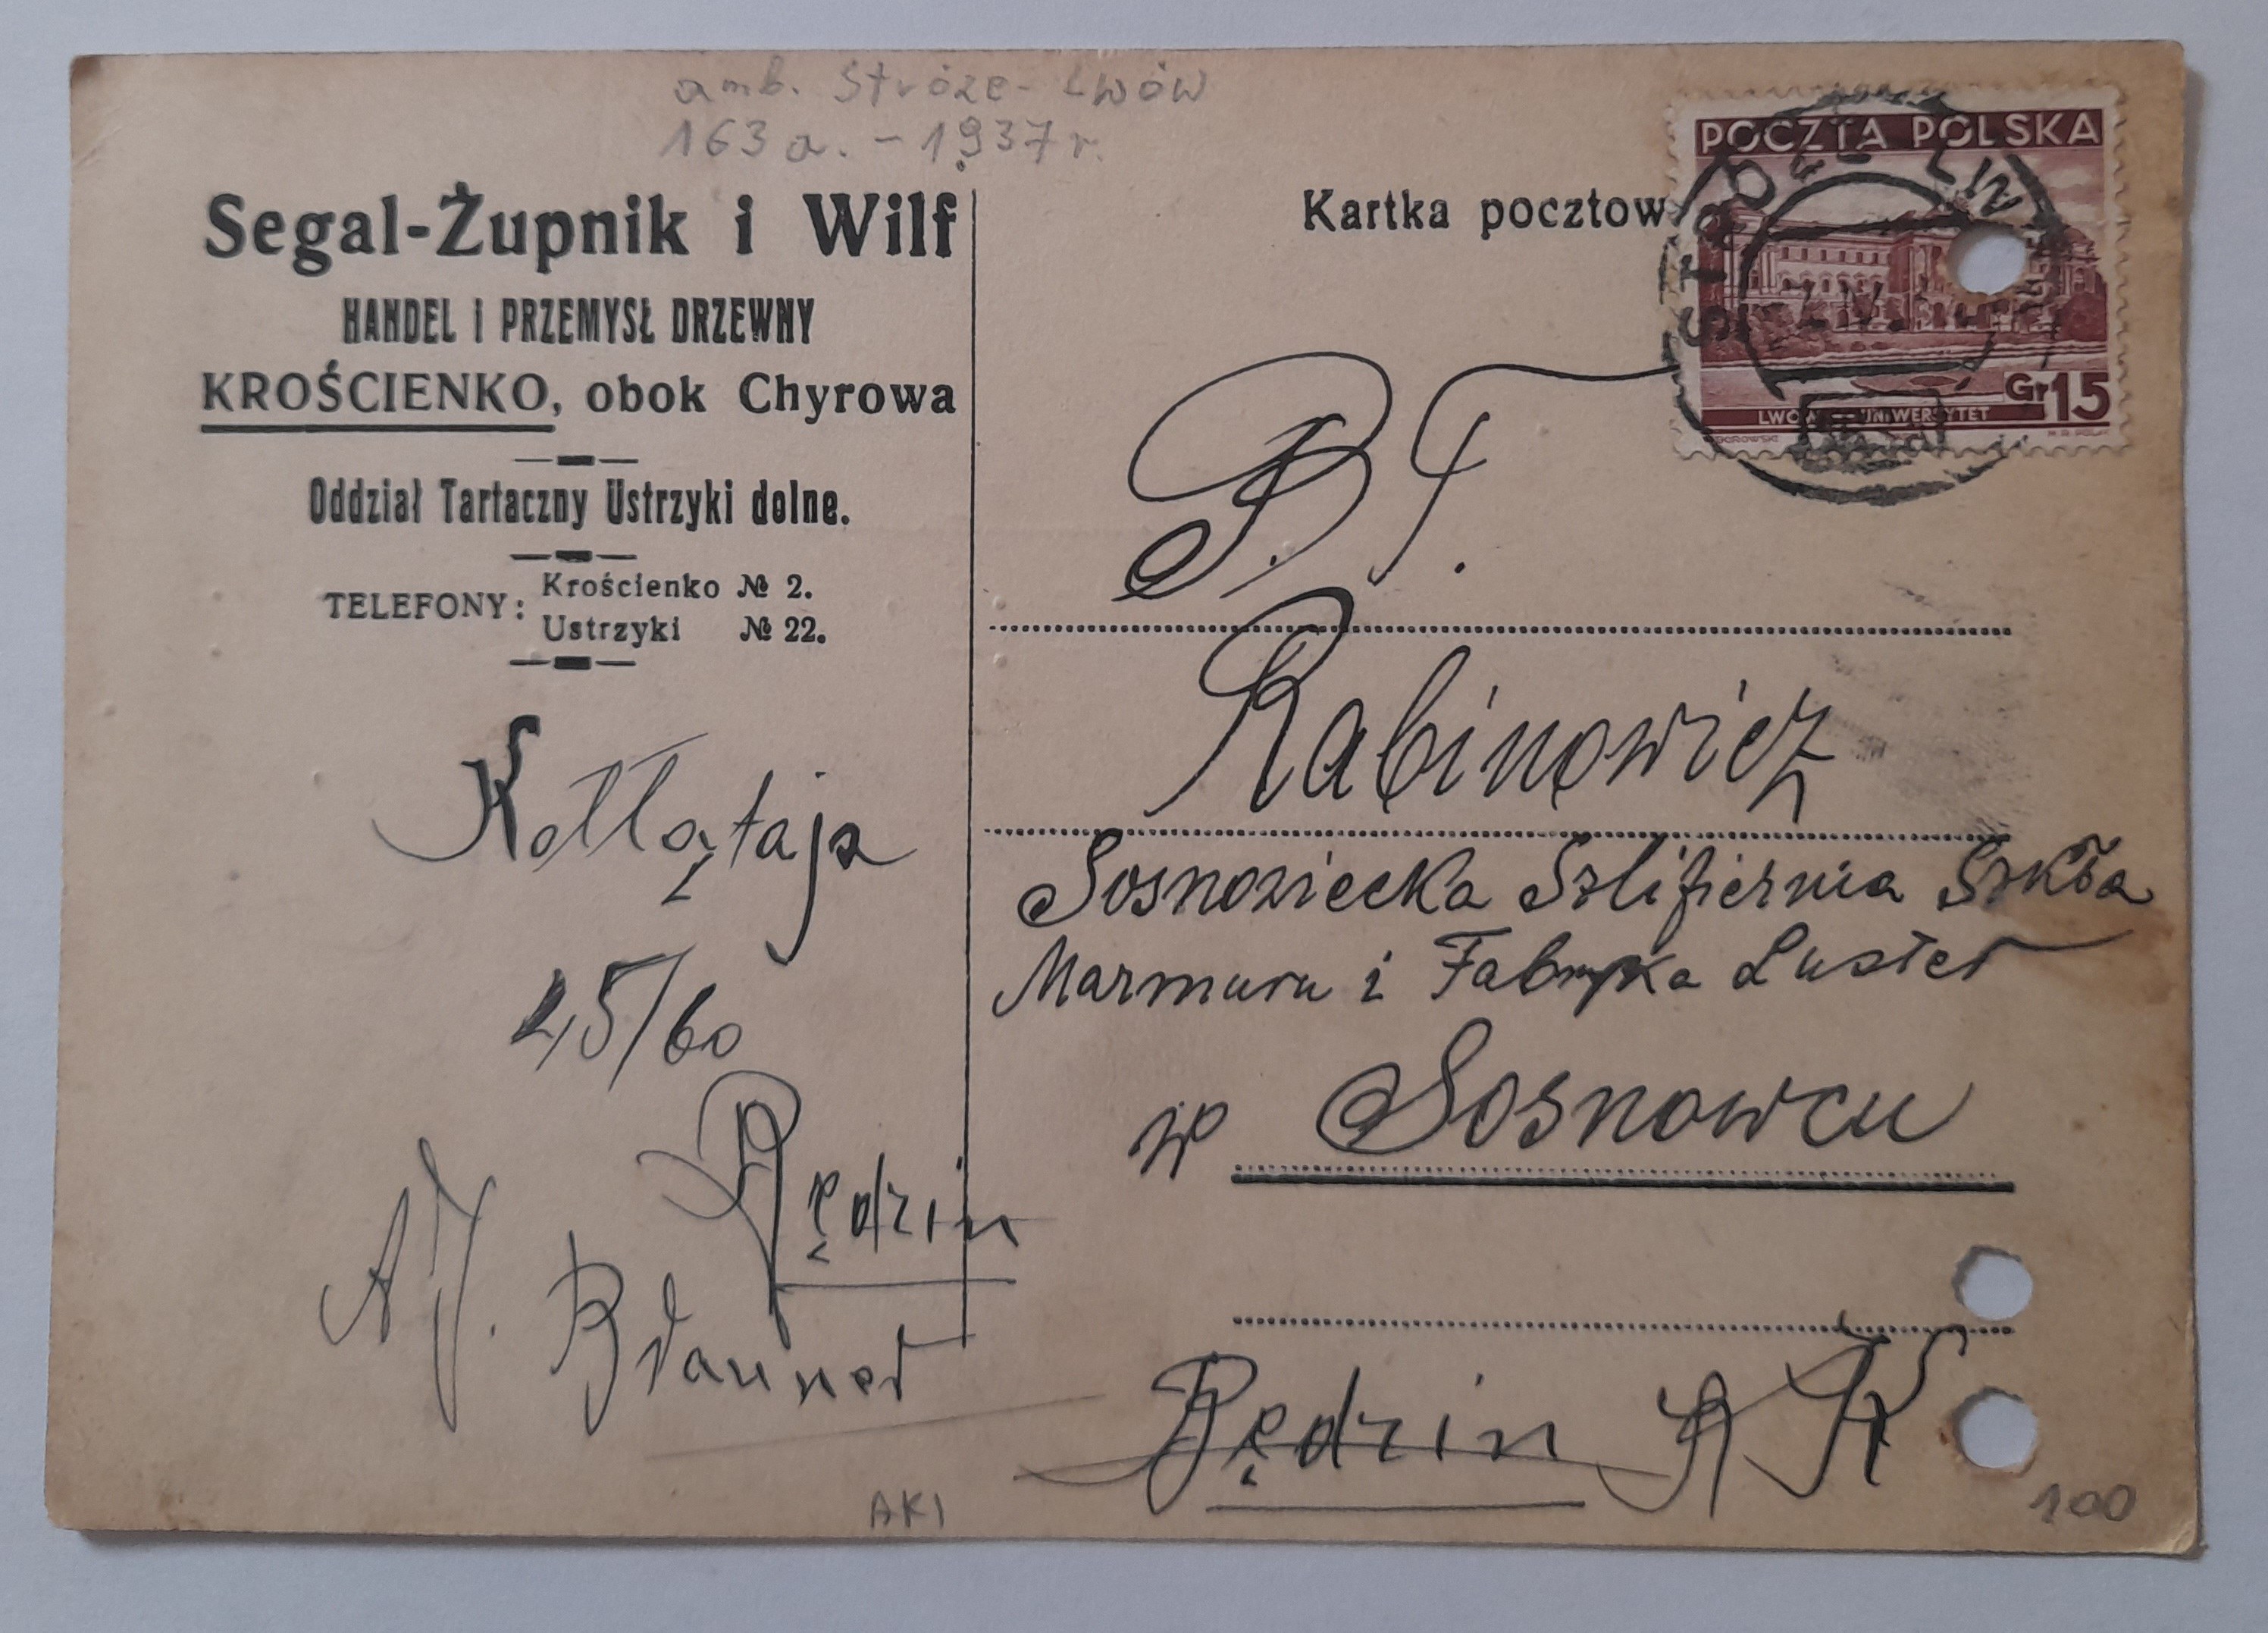 amb. Stróże - Lwów
163 a. - 1937 r.
Segal-Żupnik i Wilf
HANDEL i PRZEMYSŁ DRZEWNY
KROŚCIENKO, obok Chyrowa
Oddział Tartaczny Ustrzyki dolne.
TELEFONY: Krościenko № 2.
Ustrzyki № 22.
Kołłątaja
45/60
Będzin
AJ. Brauner
AKI
Kartka pocztow
POCZTA POLSKA
Gr 15
LWÓW UNIWERSYTET
P. T.
Rabinowicz
Sosnowiecka Szlifiernia Szkła
Marmuru i Fabryka Luster
w Sosnowcu
Będzin
100